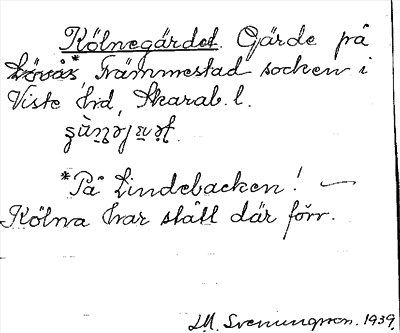 Kölnegärdet. Gärde på
Lövås*, Främmestad socken i
Viste hd, Skarab. l.
*På Lindebacken! —
Kölna har stått där förr.
M. Svenungsson. 1939.